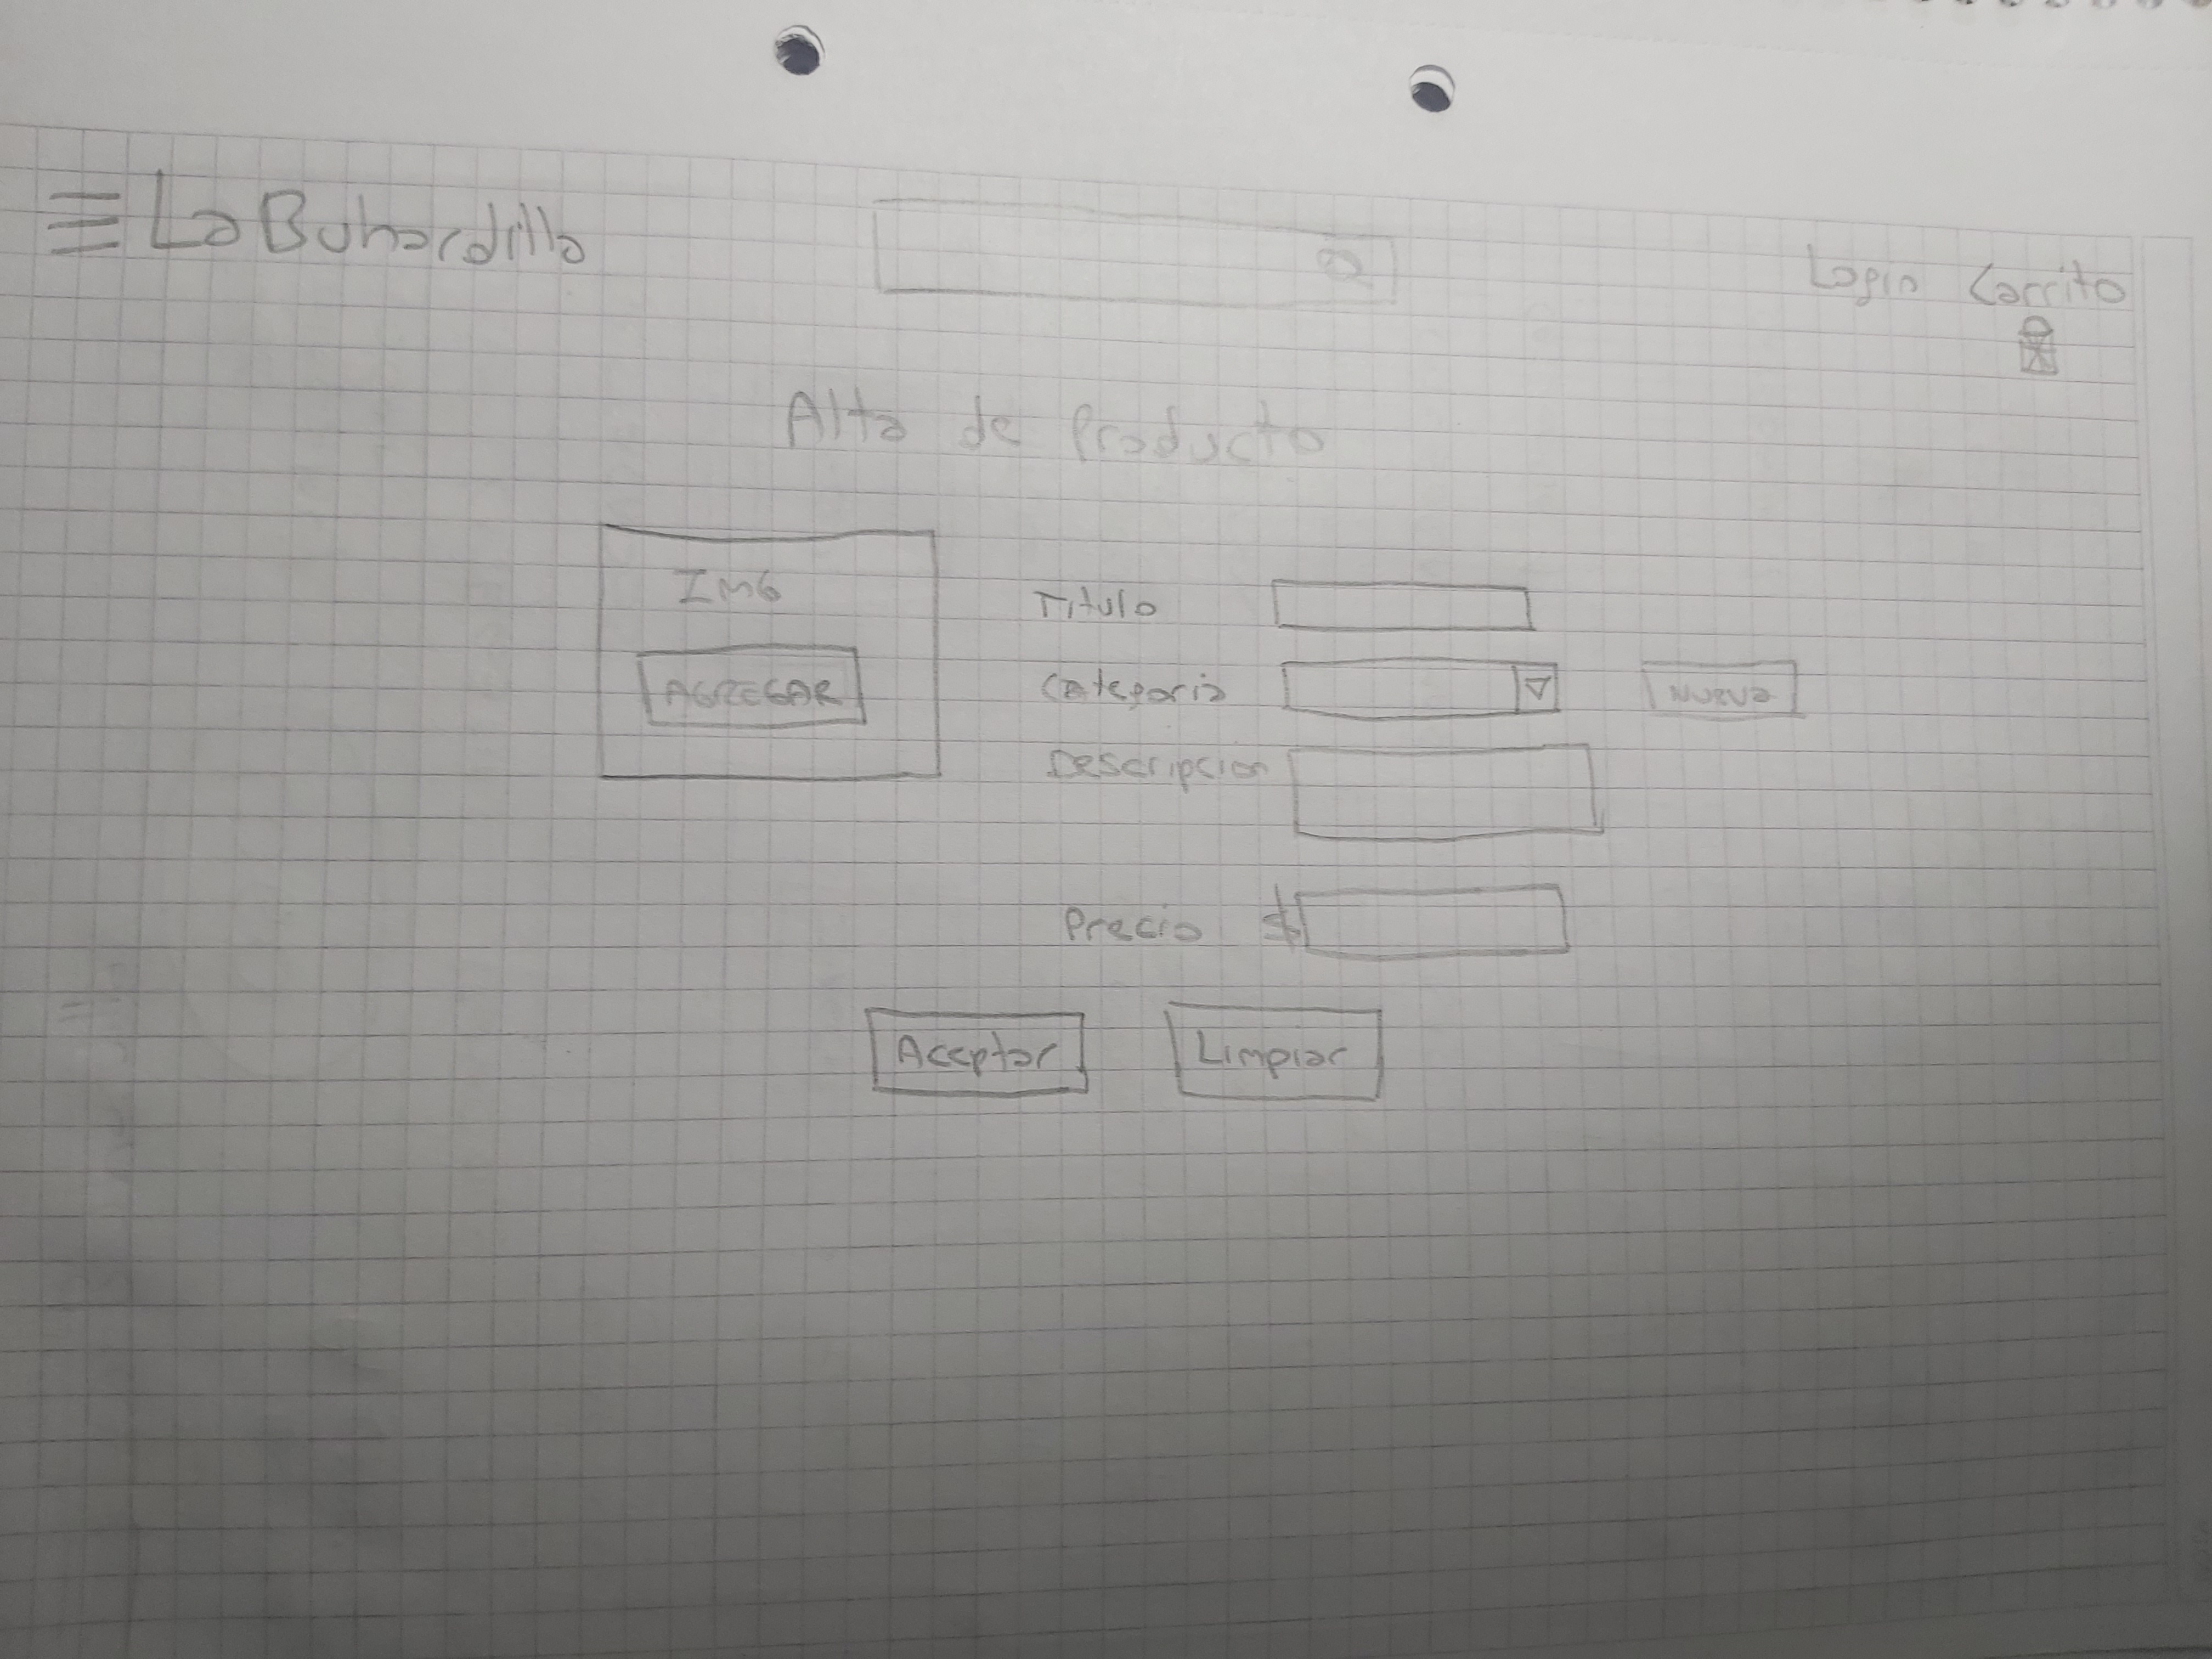 La Buhardilla
Login Carrito
Alta de Producto
IMG
AGREGAR
Titulo
Categoria
Nueva
Descripcion
Precio $
Aceptar
Limpiar